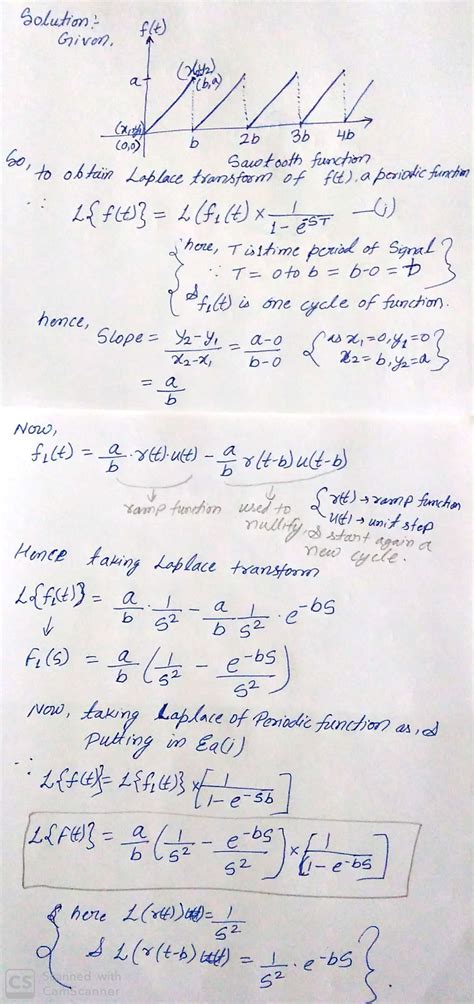 Solution:-
Given,
f(t)
a
(x2,y2)
(b,a)
(x1,y1)
(0,0)
b 2b 3b 4b
Sawtooth function
So, to obtain Laplace transform of f(t), a periodic function
∴ L{f(t)} = L(f₁(t) × 1/(1 - e^-ST) —(i)
{ here, T is time period of Signal
∴ T = 0 to b = b-0 = b }
{ & f₁(t) is one cycle of function.
hence,
Slope = (y₂-y₁)/(x₂-x₁) = (a-0)/(b-0) { as x₁=0, y₁=0 x₂=b, y₂=a }
= a/b
Now,
f₁(t) = a/b · r(t)·u(t) - a/b r(t-b) u(t-b)
ramp function used to nullify & start again a new cycle.
{ r(t) → ramp function
u(t) → unit step
Hence taking Laplace transform
L{f₁(t)} = a/b · 1/S² - a/b 1/S² · e^-bS
↓
F₁(S) = a/b (1/S² - e^-bS/S²)
Now, taking Laplace of Periodic function as, &
Putting in Eq(i)
∴ L{f(t)} = L{f₁(t)} × [1/(1 - e^-Sb)]
L{f(t)} = a/b (1/S² - e^-bS/S²] × [1/(1 - e^-bS]
{ here L(r(t)) = 1/S²
& L(r(t-b) = 1/S² · e^-bS }.
CS Scanned with
CamScanner